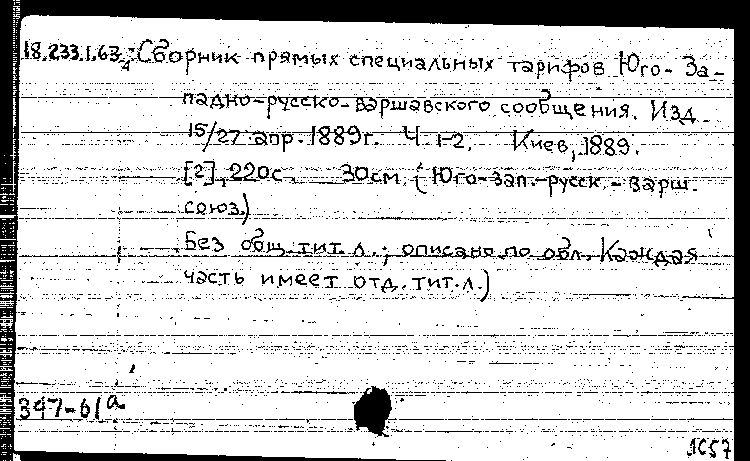 18.233.1.63 Сборник прямых специальных тарифов Юго-За-
падно-русско-варшавского сообщения. Изд.
15/27 апр. 1889г. Ч. 1-2. Киев, 1889.
[2], 220с. 30см. (Юго-зап.-русск.-варш.
союз.)
Без общ. тит. л.; описано по обл. Каждая
часть имеет отд. тит. л.)
347-61а